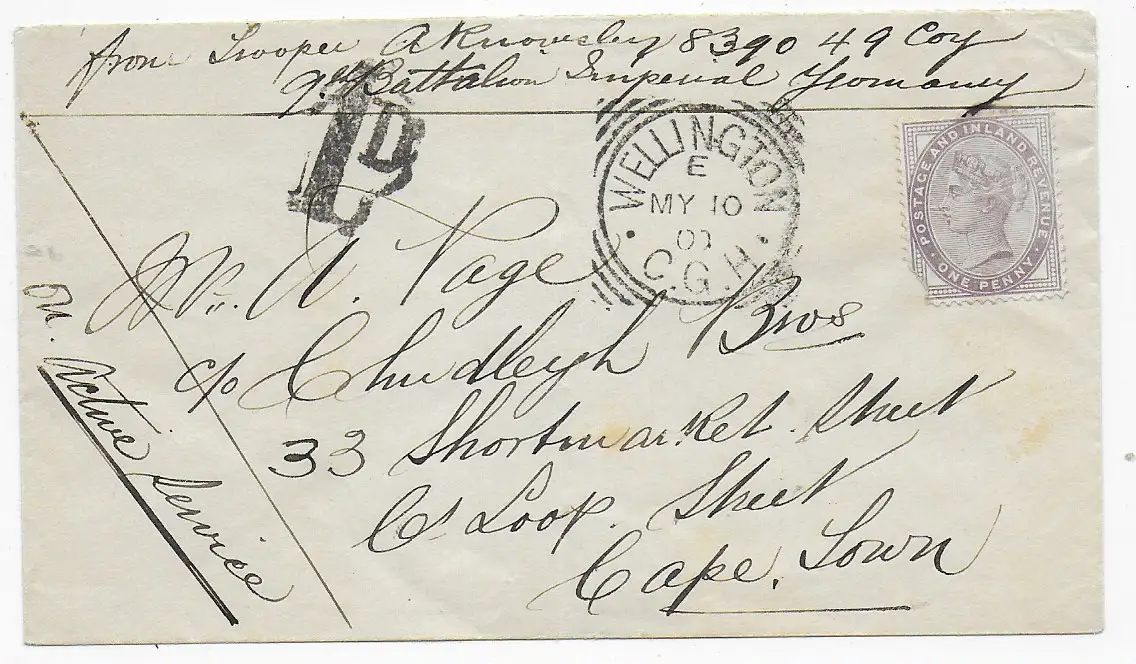 from Trooper A Knowsley 8390 49 Coy
9th Battalion Imperial Yeomanry
1D
WELLINGTON
E
MY 10
C.G.H.
POSTAGE AND INLAND REVENUE
ONE PENNY
Mr. A. Page
c/o Chudleigh Bros
33 Shortmarket Street
Loop Street
Cape Town
On Active Service